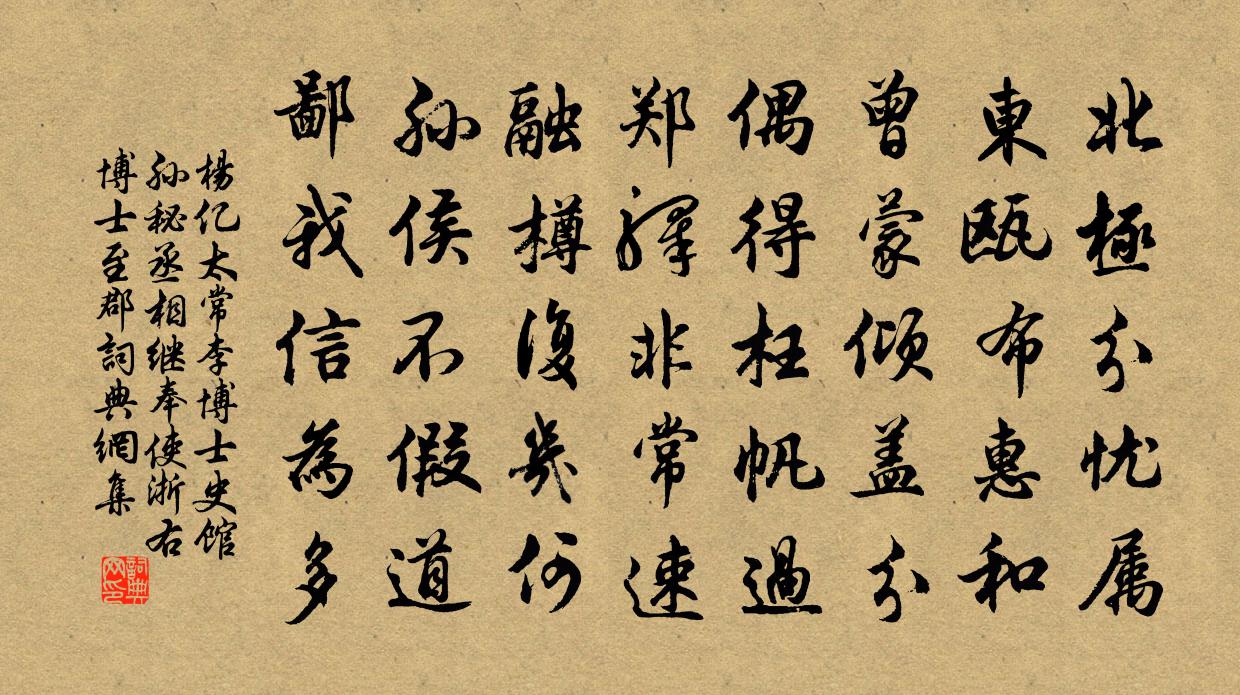 北極分忧属
東瓯布惠和
曾蒙倾盖分
偶得枉帆過
郑驿非常速
融樽復幾何
孙侯不假道
鄙我信為多
楊亿太常李博士史馆
孙秘丞相继奉使浙右
博士至郡詞典網集
詞典网印